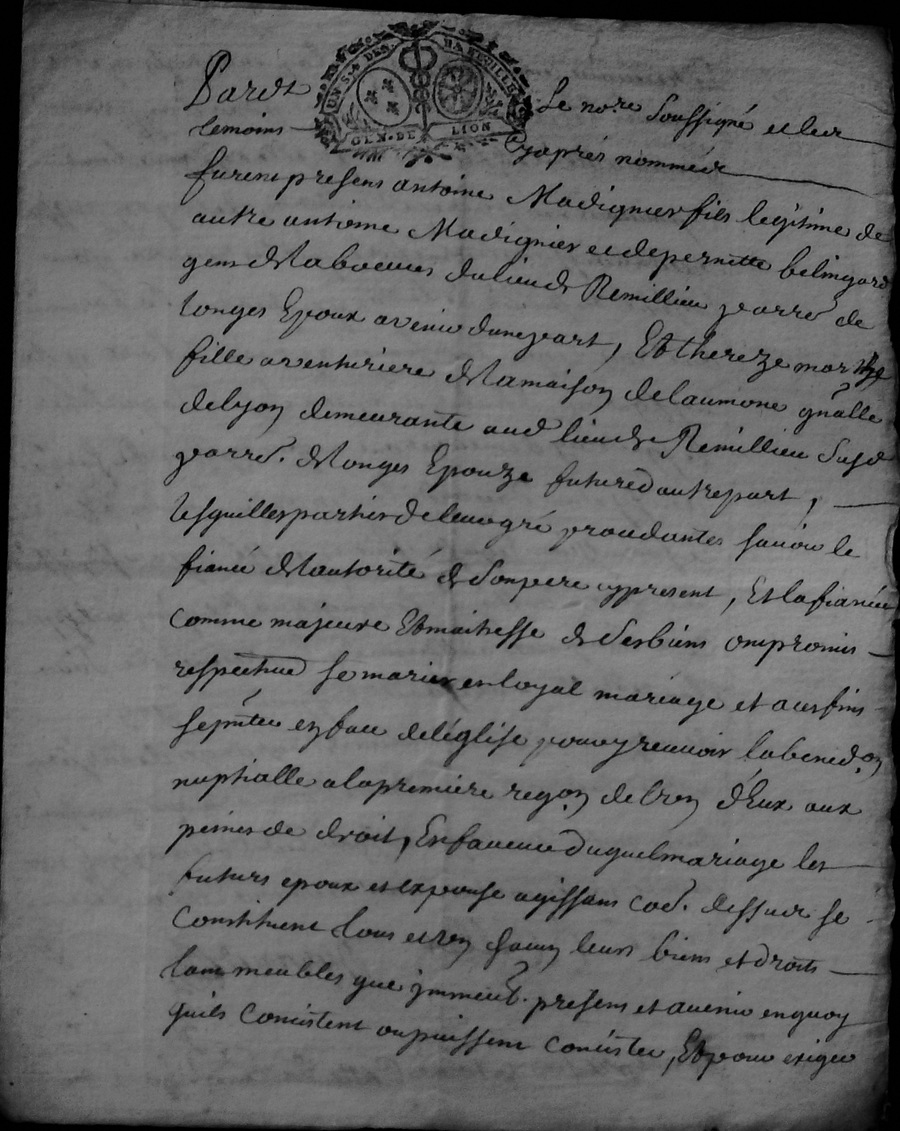 UN S. 4 DES. HA FEUILLE
GEN. DE LION
Pardt Le nore Soussigné et les
temoins cyaprés nommés
furent presens antoine Madignier fils legitime de
autre antoine Madignier et de pernette belingard
gens de labeurs du lieu de Remillieu parre de
longes Epoux avenir d'une part, Et thereze
fille aventuriere de la maison de laumone gnâlle
de lyon demeurante aud lieu de Remillieu susd
parre. de longes Epouze future d'autre part,
lesquelles parties de leur gré procedantes savoir le
fiancé de l'autorité de son pere cy present, Et la fiancée
comme majeure Et maitresse de ses biens ont promis
respectived se marier en loyal mariage et aux fins
se pnter en face de l'église pour y recevoir la benedon
nuptialle a la premiere reqon de l'un d'Eux aux
peines de droit, En faveur duquel mariage les
futurs epoux et expouse agissans cod. dessus se
Constituent tous et un chacun leurs biens et droits
tant meubles que jmmeub. presens et avenir en quoy
quils Consistent ou puissent consister, Et pour exiger